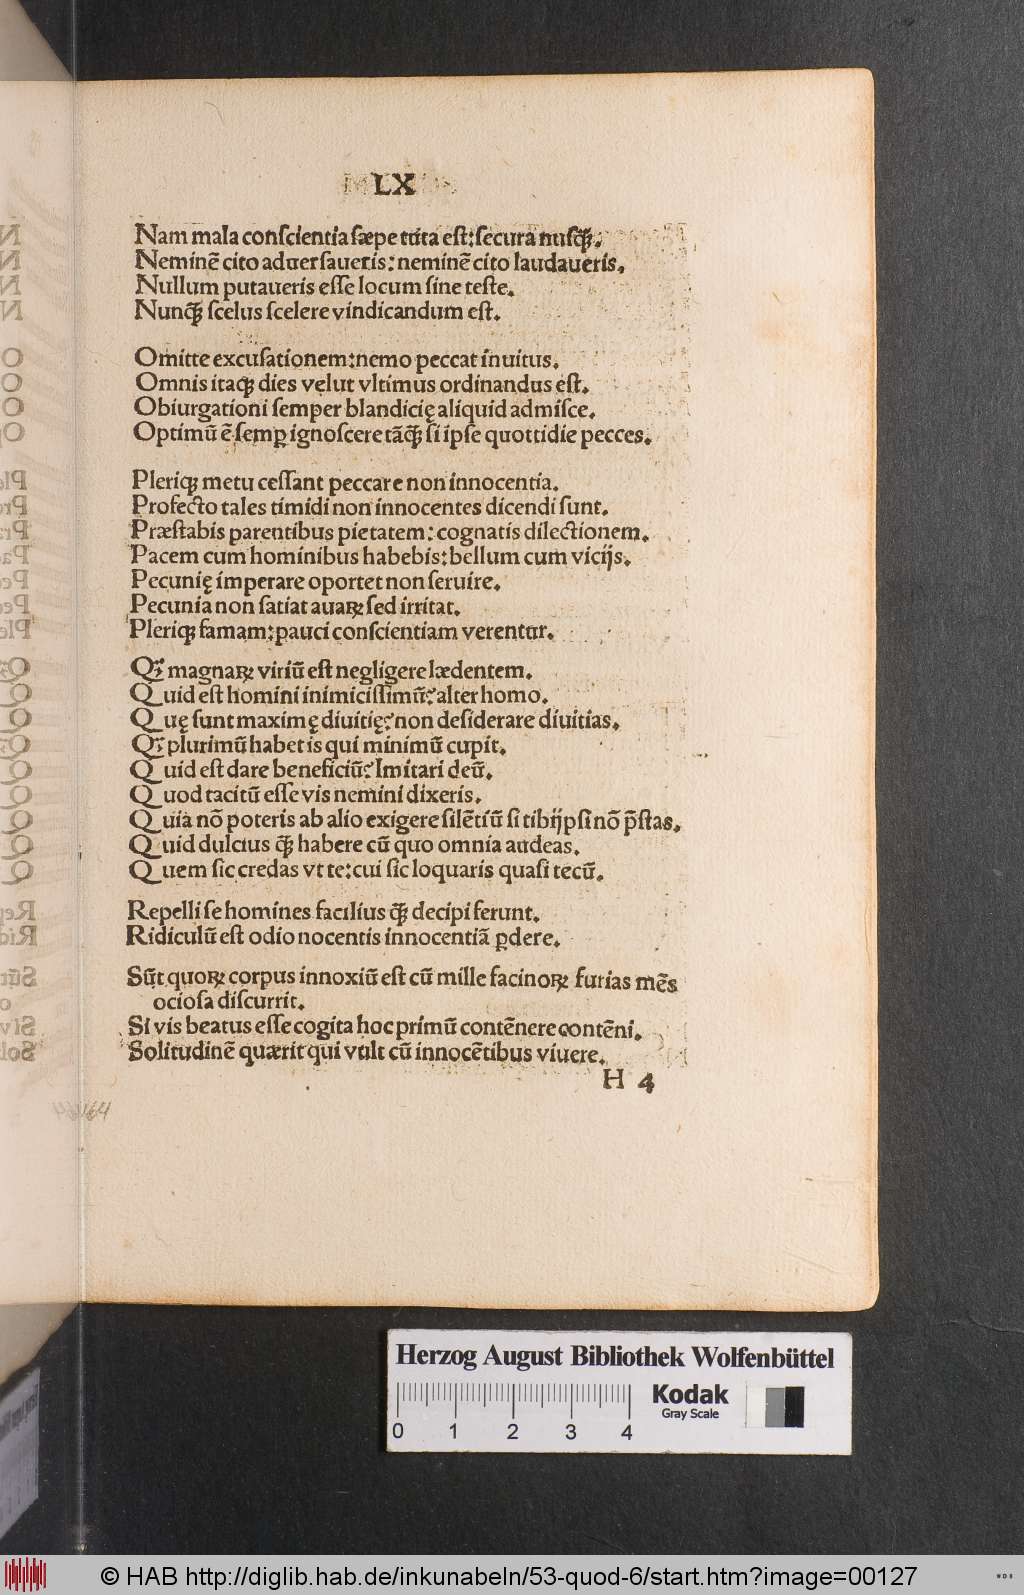 LX
Nam mala conſcientia ſæpe tuta eſt: ſecura nuſq̃.
Neminẽ cito aduerſaueris: neminẽ cito laudaueris.
Nullum putaueris eſſe locum ſine teſte.
Nunq̃ ſcelus ſcelere vindicandum eſt.
Omitte excuſationem: nemo peccat inuitus.
Omnis itaqꝫ dies velut vltimus ordinandus eſt.
Obiurgationi ſemper blandicię aliquid admiſce.
Optimũ ẽ ſemꝑ ignoſcere tãq̃ ſi ipſe quottidie pecces.
Pleriqꝫ metu ceſſant peccare non innocentia.
Profecto tales timidi non innocentes dicendi ſunt.
Præſtabis parentibus pietatem: cognatis dilectionem.
Pacem cum hominibus habebis: bellum cum vicijs.
Pecunię imperare oportet non ſeruire.
Pecunia non ſatiat auaꝝ ſed irritat.
Pleriqꝫ famam: pauci conſcientiam verentur.
Qꝫ magnaꝝ viriũ eſt negligere lædentem.
Quid eſt homini inimiciſſimũ? alter homo.
Quę ſunt maximę diuitię? non deſiderare diuitias.
Qꝫ plurimũ habet is qui minimũ cupit.
Quid eſt dare beneficiũ? Imitari deũ.
Quod tacitũ eſſe vis nemini dixeris.
Quia nõ poteris ab alio exigere ſilẽtiũ ſi tibijpſi nõ p̃ſtas.
Quid dulcius q̃ habere cũ quo omnia audeas.
Quem ſic credas vt te: cui ſic loquaris quaſi tecũ.
Repelli ſe homines facilius q̃ decipi ferunt.
Ridiculũ eſt odio nocentis innocentiã ꝑdere.
Sũt quoꝝ corpus innoxiũ eſt cũ mille facinoꝝ furias mẽs
ocioſa diſcurrit.
Si vis beatus eſſe cogita hoc primũ contẽnere contẽni.
Solitudinẽ quærit qui vult cũ innocẽtibus viuere.
H 4
Herzog August Bibliothek Wolfenbüttel
Kodak
Gray Scale
0 1 2 3 4
© HAB http://diglib.hab.de/inkunabeln/53-quod-6/start.htm?image=00127